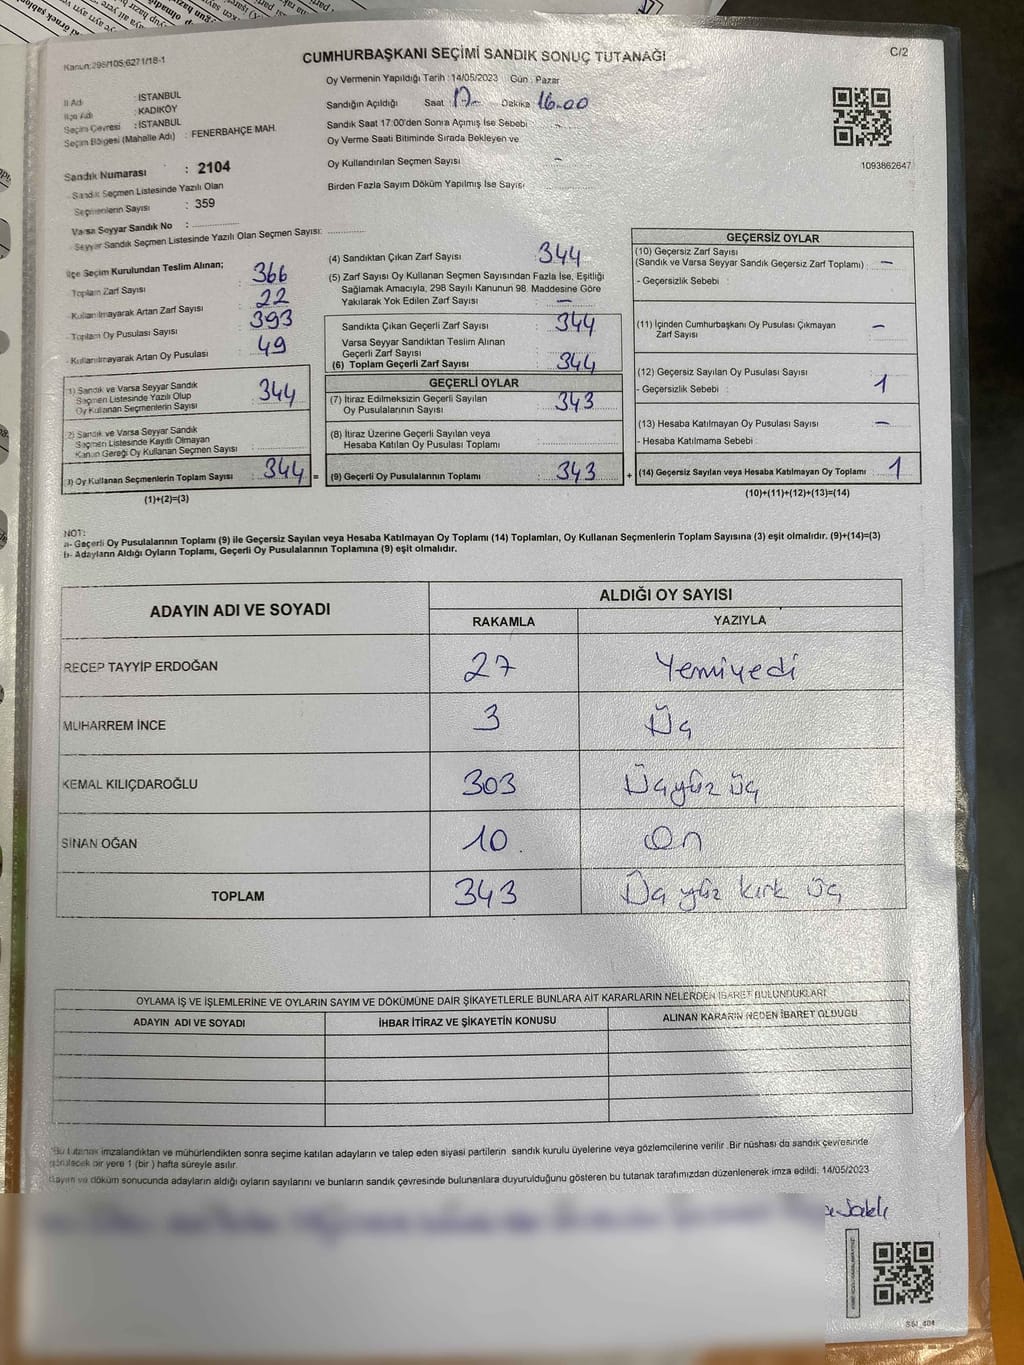 Kanun:298/105;6271/18-1
CUMHURBAŞKANI SEÇİMİ SANDIK SONUÇ TUTANAĞI
C/2
Oy Vermenin Yapıldığı Tarih : 14/05/2023 Gün : Pazar
İl Adı : İSTANBUL
İlçe Adı : KADIKÖY
Seçim Çevresi : İSTANBUL
Seçim Bölgesi (Mahalle Adı) : FENERBAHÇE MAH.
Sandık Numarası : 2104
Sandık Seçmen Listesinde Yazılı Olan
Seçmenlerin Sayısı : 359
Varsa Seyyar Sandık No :
Seyyar Sandık Seçmen Listesinde Yazılı Olan Seçmen Sayısı:
Sandığın Açıldığı Saat 17- Dakika 16.00
Sandık Saat 17:00'den Sonra Açımış İse Sebebi –
Oy Verme Saati Bitiminde Sırada Bekleyen ve
Oy Kullandırılan Seçmen Sayısı –
Birden Fazla Sayım Döküm Yapılmış İse Sayısı
1093862647
İlçe Seçim Kurulundan Teslim Alınan;
Toplam Zarf Sayısı : 366
- Kullanılmayarak Artan Zarf Sayısı : 22
- Toplam Oy Pusulası Sayısı : 393
- Kullanılmayarak Artan Oy Pusulası : 49
1) Sandık ve Varsa Seyyar Sandık
Seçmen Listesinde Yazılı Olup
Oy Kullanan Seçmenlerin Sayısı : 344
2) Sandık ve Varsa Seyyar Sandık
Seçmen Listesinde Kayıtlı Olmayan
Kanun Gereği Oy Kullanan Seçmen Sayısı :
3) Oy Kullanan Seçmenlerin Toplam Sayısı : 344 =
(1)+(2)=(3)
(4) Sandıktan Çıkan Zarf Sayısı : 344
(5) Zarf Sayısı Oy Kullanan Seçmen Sayısından Fazla İse, Eşitliği
Sağlamak Amacıyla, 298 Sayılı Kanunun 98. Maddesine Göre
Yakılarak Yok Edilen Zarf Sayısı : –
Sandıkta Çıkan Geçerli Zarf Sayısı : 344
Varsa Seyyar Sandıktan Teslim Alınan
Geçerli Zarf Sayısı :
(6) Toplam Geçerli Zarf Sayısı : 344
GEÇERLİ OYLAR
(7) İtiraz Edilmeksizin Geçerli Sayılan
Oy Pusulalarının Sayısı : 343
(8) İtiraz Üzerine Geçerli Sayılan veya
Hesaba Katılan Oy Pusulası Toplamı :
(9) Geçerli Oy Pusulalarının Toplamı : 343 +
GEÇERSİZ OYLAR
(10) Geçersiz Zarf Sayısı
(Sandık ve Varsa Seyyar Sandık Geçersiz Zarf Toplamı) : –
- Geçersizlik Sebebi :
(11) İçinden Cumhurbaşkanı Oy Pusulası Çıkmayan
Zarf Sayısı : –
(12) Geçersiz Sayılan Oy Pusulası Sayısı : 1
- Geçersizlik Sebebi :
(13) Hesaba Katılmayan Oy Pusulası Sayısı : –
- Hesaba Katılmama Sebebi :
(14) Geçersiz Sayılan veya Hesaba Katılmayan Oy Toplamı : 1
(10)+(11)+(12)+(13)=(14)
NOT:
a- Geçerli Oy Pusulalarının Toplamı (9) ile Geçersiz Sayılan veya Hesaba Katılmayan Oy Toplamı (14) Toplamları, Oy Kullanan Seçmenlerin Toplam Sayısına (3) eşit olmalıdır. (9)+(14)=(3)
b- Adayların Aldığı Oyların Toplamı, Geçerli Oy Pusulalarının Toplamına (9) eşit olmalıdır.
ADAYIN ADI VE SOYADI
ALDIĞI OY SAYISI
RAKAMLA YAZIYLA
RECEP TAYYİP ERDOĞAN 27 Yemiyedi
MUHARREM İNCE 3 Üç
KEMAL KILIÇDAROĞLU 303 Üçyüz üç
SİNAN OĞAN 10. On
TOPLAM 343 Üç yüz kırk üç
OYLAMA İŞ VE İŞLEMLERİNE VE OYLARIN SAYIM VE DÖKÜMÜNE DAİR ŞİKAYETLERLE BUNLARA AİT KARARLARIN NELERDEN İBARET BULUNDUKLARI
ADAYIN ADI VE SOYADI İHBAR İTİRAZ VE ŞİKAYETİN KONUSU ALINAN KARARIN NEDEN İBARET OLDUĞU
*Bu tutanak imzalandıktan ve mühürlendikten sonra seçime katılan adayların ve talep eden siyasi partilerin sandık kurulu üyelerine veya gözlemcilerine verilir .Bir nüshası da sandık çevresinde
görülecek bir yere 1 (bir ) hafta süreyle asılır.
Sayım ve döküm sonucunda adayların aldığı oyların sayılarını ve bunların sandık çevresinde bulunanlara duyurulduğunu gösteren bu tutanak tarafımızdan düzenlenerek imza edildi. 14/05/2023